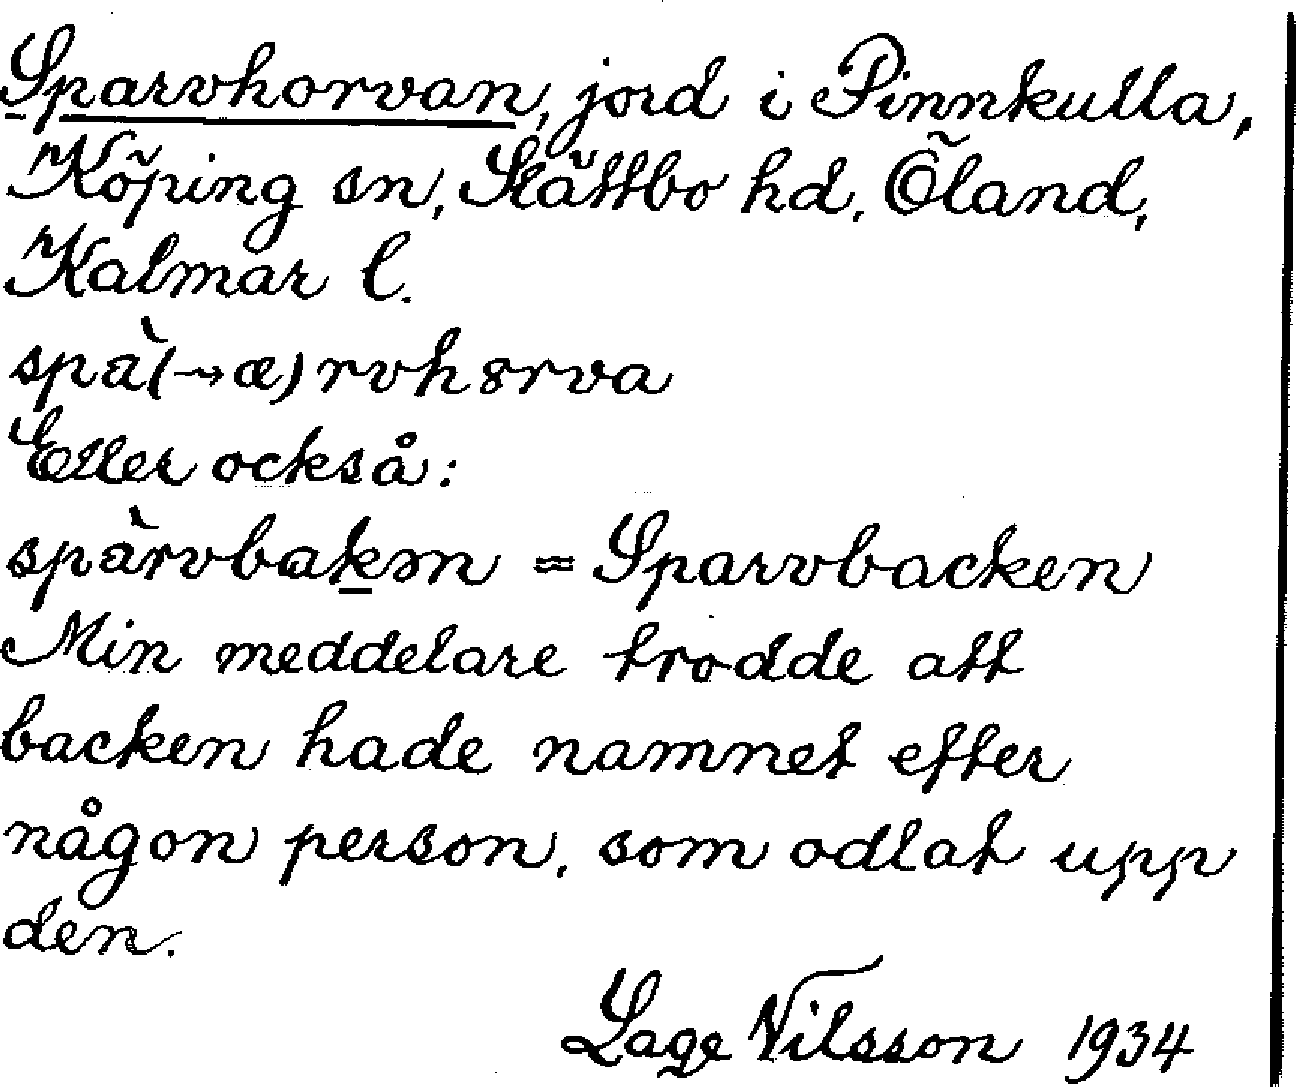 Sparvhorvan, jord i Pinnkulla,
Köping sn, Slättbo hd, Öland,
Kalmar l.
spà(→æ)rvh8rva
Eller också:
spàrvbakm = Sparvbacken
Min meddelare trodde att
backen hade namnet efter
någon person, som odlat upp
den.
Lage Nilsson 1934